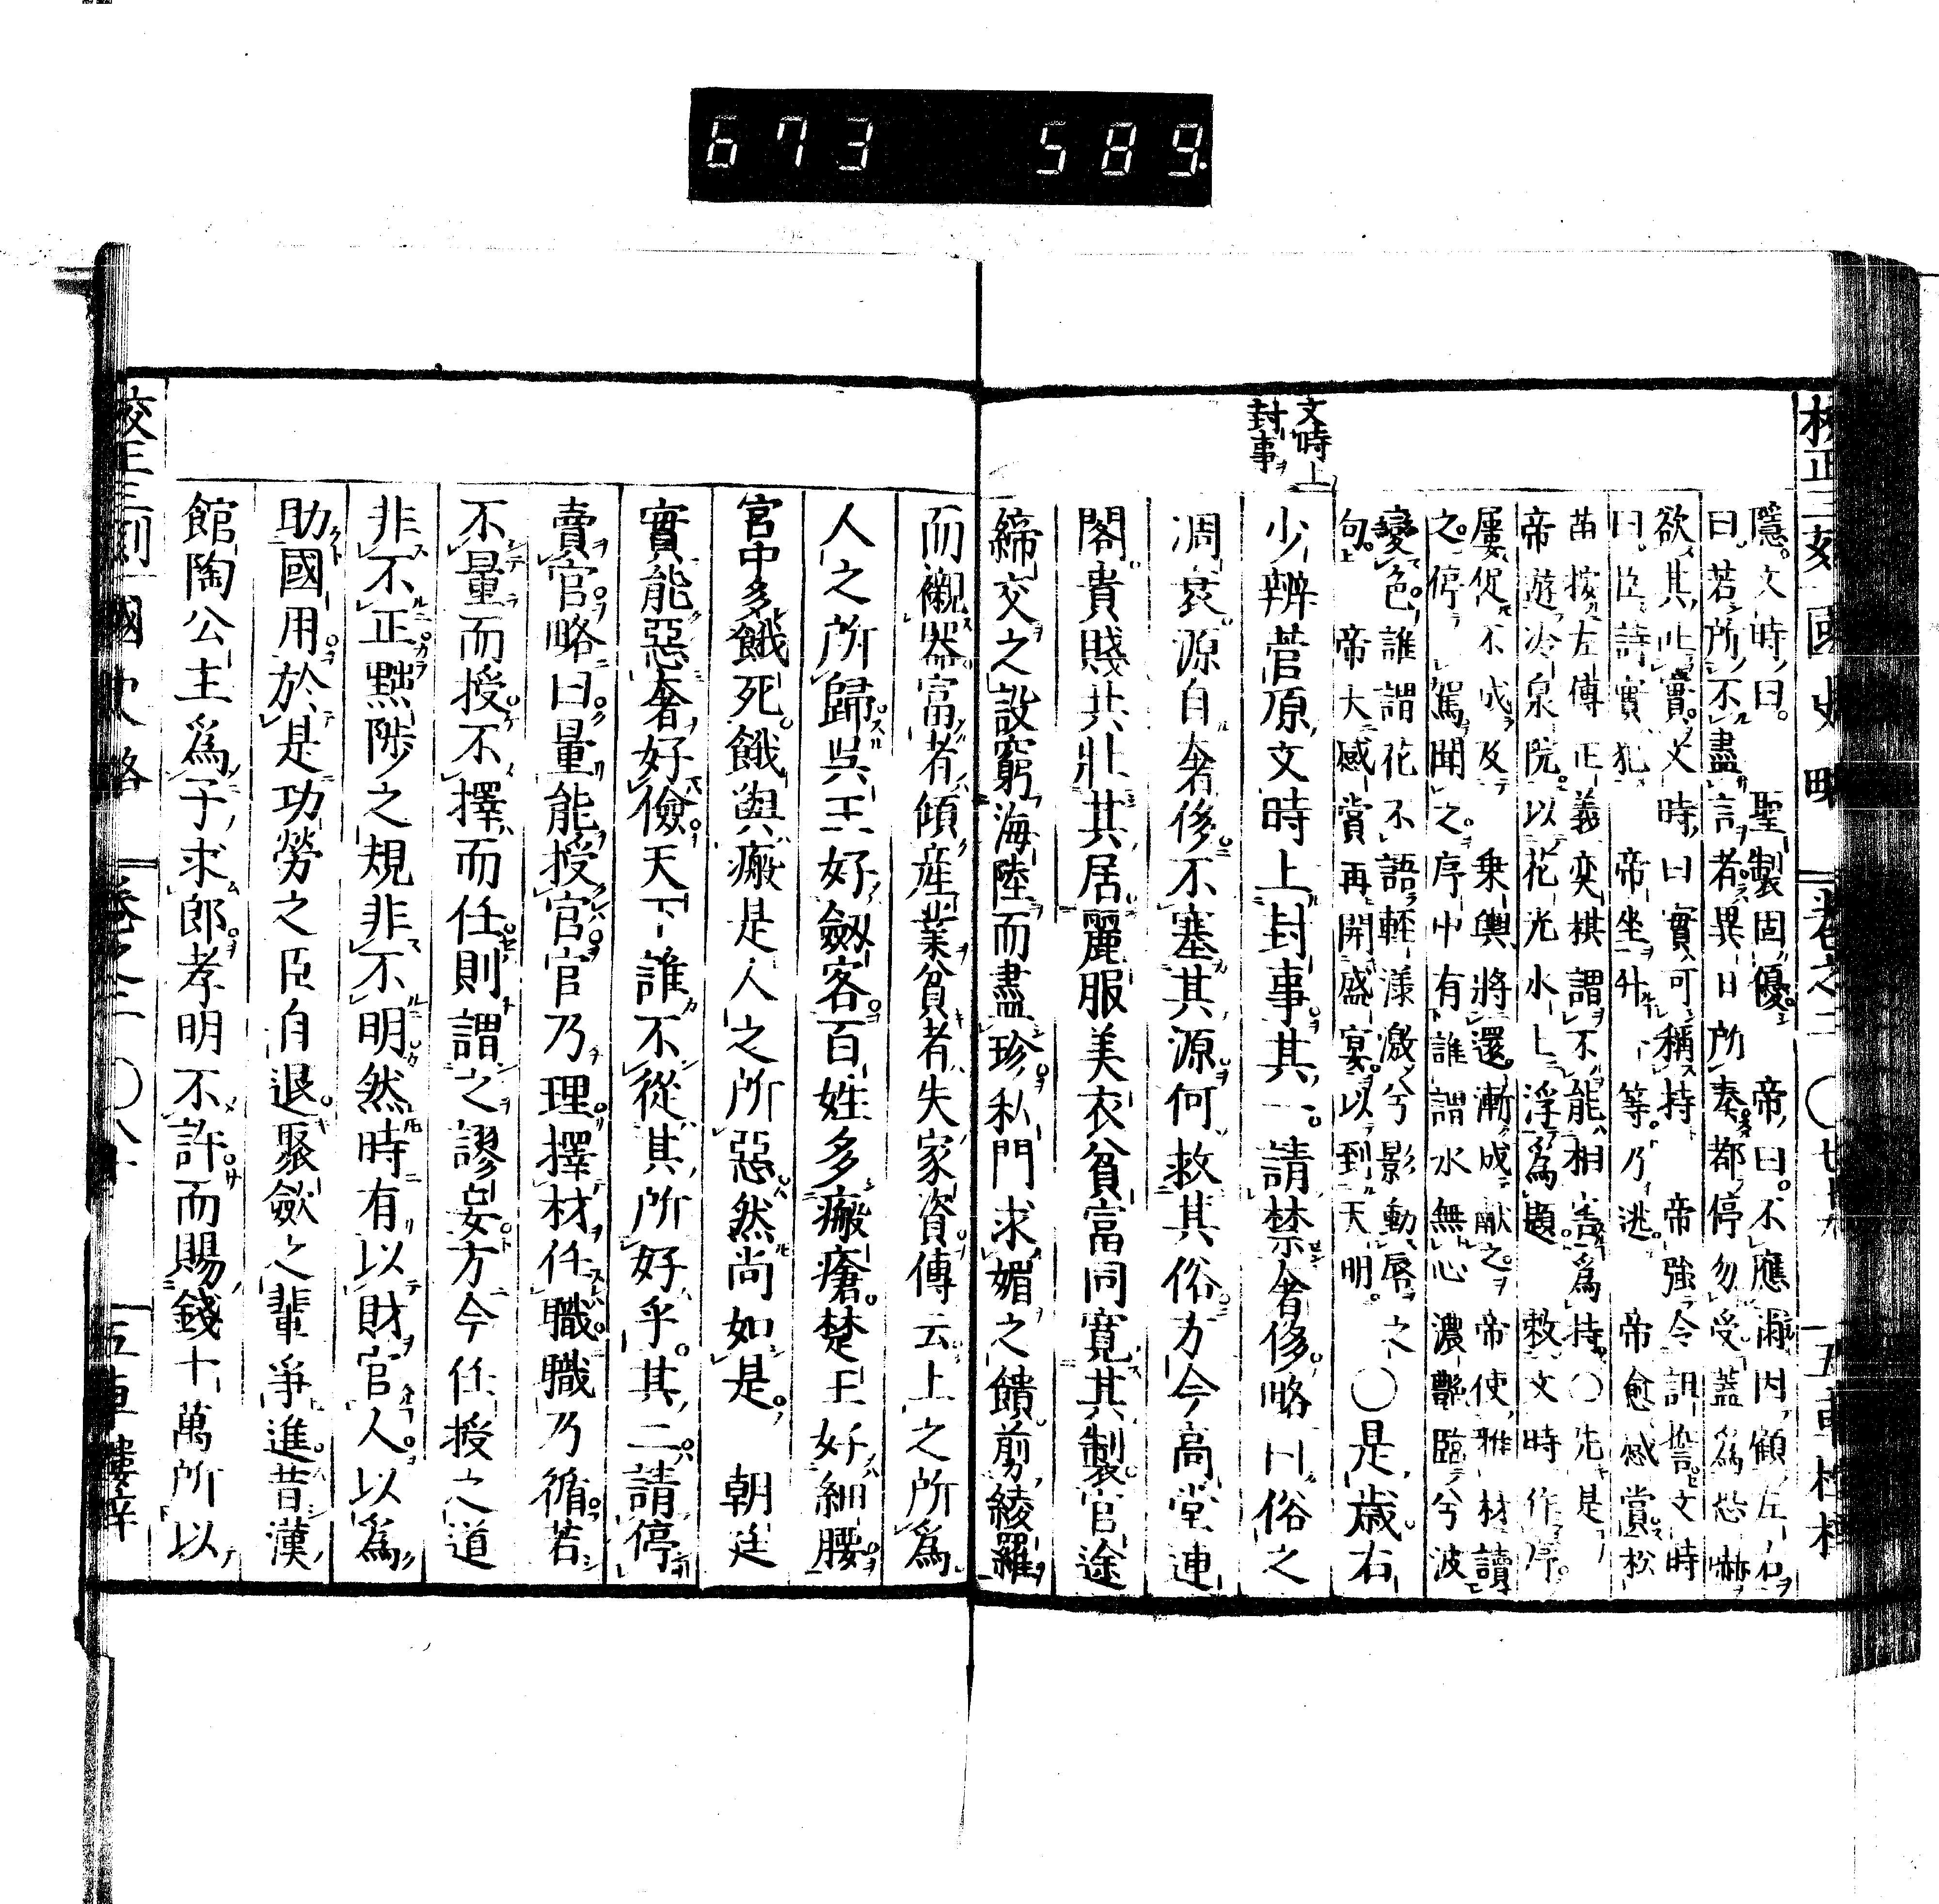 673 589
文時上
封事
隱。文時曰。 聖製固優。 帝曰。不應 因顧左右
曰。若所不盡言者異日所奏都停勿受蓋爲恐嚇
欲其 實。文時曰實可稱持 帝強令 誓文時
曰。臣詩實犯 帝坐升一等。乃逃。 帝愈感賞 松
苗按左傳正義奕棋謂不能相害爲持。〇先是
帝遊冷泉院。以花光水上浮爲題 敕文時作序。
屢促不成及 乗輿將還。漸成献之。 帝使 材讀
之。停 駕聞之。序中有誰謂水無心濃艶臨兮波
變色。誰謂花不語輕漾激兮影動脣之
句。 帝大感賞再開盛宴。以到天明。
〇是歳右
少辨菅原文時上封事其一。請禁奢侈略曰俗之
凋衰源自奢侈不塞其源何救其俗方今高堂連
閣貴賤共壯其居麗服美衣貧富同寬其製官途
締交之設窮海陸而盡珍私門求媚之饋剪綾羅
而襯器富者傾産業貧者失家資傳云上之所爲
人之所歸呉王好劔客百姓多瘢瘡楚王好細腰
宮中多餓死餓與瘢是人之所惡然尚如是 朝廷
實能惡奢好儉天下誰不從其所好乎其二請停
賣官略曰量能授官官乃理擇材任職職乃脩若
不量而授不擇而任則謂之謬妄方今任授之道
非不正黜陟之規非不明然時有以財官人以爲
助國用於是功勞之臣自退聚歛之輩爭進昔漢
館陶公主爲子求郎孝明不許而賜錢十萬所以
國史略 卷之二 〇八十 五車樓梓